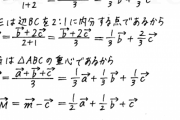 は辺BCを2:1に内分する点であるから
= \frac{\vec{b}+2\vec{c}}{2+1} = \frac{\vec{b}+2\vec{c}}{3} = \frac{1}{3}\vec{b}+\frac{2}{3}\vec{c}
は△ABCの重心であるから
= \frac{\vec{a}+\vec{b}+\vec{c}}{3} = \frac{1}{3}\vec{a}+\frac{1}{3}\vec{b}+\frac{1}{3}\vec{c}
= \vec{m}-\vec{c} = \frac{1}{2}\vec{a}+\frac{1}{2}\vec{b}+\vec{c}